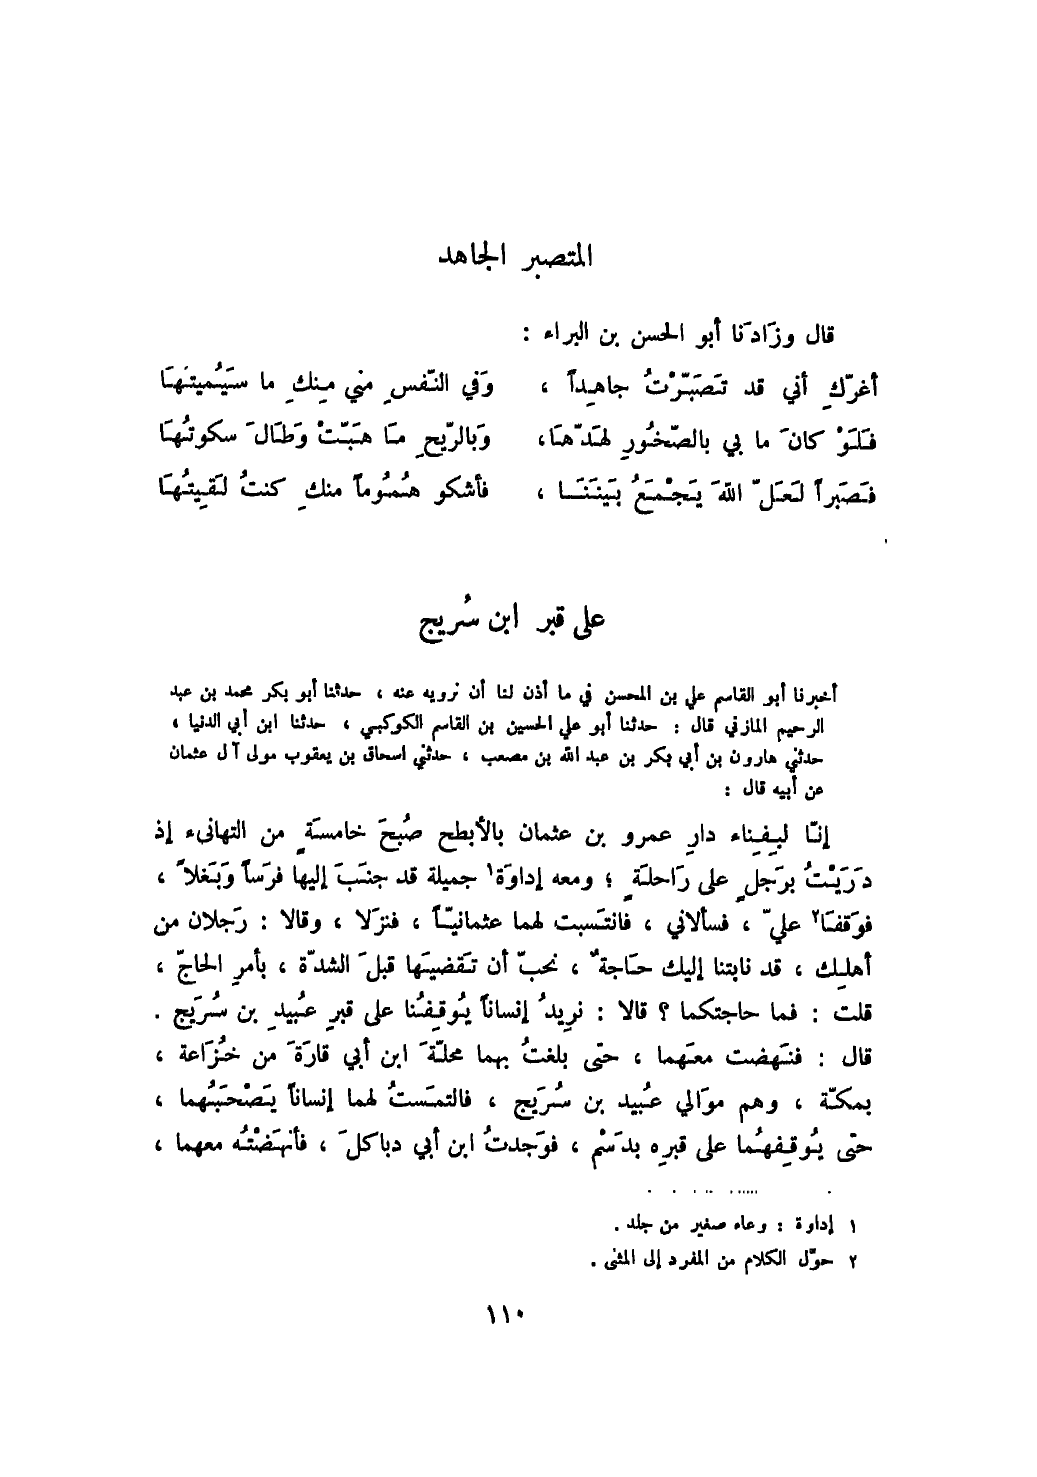 المتصبر الجاهد
قال وزَادَنا أبو الحسن بن البراء :
أغرّكِ أني قد تَصَبّرْتُ جاهِداً ، وَفي النّفسِ مني مِنكِ ما سَيُميتُهَا
فَلَوْ كانَ ما بي بالصّخُورِ لهَدّهَا، وَبالرّيحِ مَا هَبّتْ وَطَالَ سكوتُهَا
فَصَبراً لَعَلّ اللهَ يَجْمَعُ بَينَنَا ، فأشكو هُمُوماً منكِ كنتُ لَقِيتُهَا
على قبر ابن سُريج
أخبرنا أبو القاسم علي بن المحسن في ما أذن لنا أن نرويه عنه ، حدثنا أبو بكر محمد بن عبد
الرحيم المازني قال : حدثنا أبو علي الحسين بن القاسم الكوكبي ، حدثنا ابن أبي الدنيا ،
حدثني هارون بن أبي بكر بن عبد الله بن مصعب ، حدثني اسحاق بن يعقوب مولى آل عثمان
عن أبيه قال :
إنّا لَبِفِناء دارِ عمرو بن عثمان بالأبطح صُبحَ خامسَةٍ من التهانىء إذ
دَرَيْتُ برَجلٍ على رَاحلَةٍ ؛ ومعه إداوَة١ جميلة قد جنَبَ إليها فرَساً وَبَغلاً ،
فوَقفَا٢ عليّ ، فسألاني ، فانتَسبت لهما عثمانيّاً ، فنزلا ، وقالا : رَجلان من
أهلِك ، قد نابتنا إليك حَاجةٌ ، نحبّ أن تَقضيَها قبلَ الشدّة ، بأمرِ الحاجّ ،
قلت : فما حاجتكما ؟ قالا : نريدُ إنساناً يُوقِفُنا على قبرِ عُبيدِ بن سُرَيج .
قال : فنَهضت معَهما ، حتى بلغتُ بهما محلّةَ ابن أبي قارَةَ من خُزَاعة ،
بمكّة ، وهم موَالي عُبيد بن سُرَيج ، فالتمَستُ لهما إنساناً يَصْحَبُهما ،
حتى يُوقِفهُما على قبرِه بدَسْم ، فوَجدتُ ابن أبي دباكلَ ، فأنهَضْتُه معهما ،
١ إداوة : وعاء صغير من جلد .
٢ حوّل الكلام من المفرد إلى المثنى .
١١٠